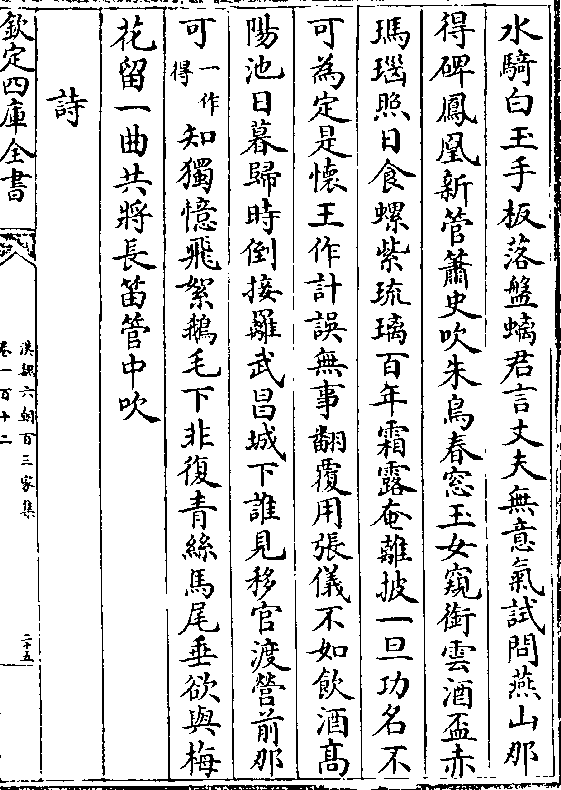 水騎白玉手板落盤螭君言丈夫無意氣試問燕山那
得碑鳳凰新管簫史吹朱鳥春窓玉女窺銜雲酒盃赤
瑪瑙照日食螺紫琉璃百年霜露奄離披一旦功名不
可為定是懐王作計誤無事翻覆用張儀不如飲酒髙
陽池日暮歸時倒接䍦武昌城下誰見移官渡營前那
可一作得知獨憶飛絮鵝毛下非復青絲馬尾垂欲與梅
花留一曲共將長笛管中吹
詩
欽定四庫全書
漢魏六朝百三家集
卷一百十二
二十五